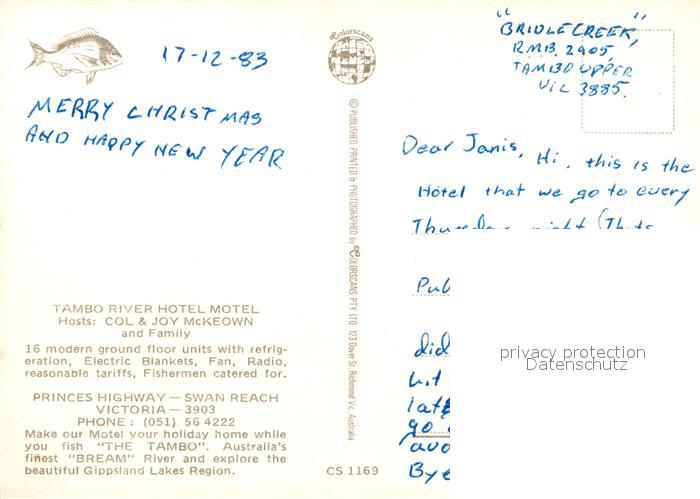 17-12-83
MERRY CHRISTMAS
AND HAPPY NEW YEAR
TAMBO RIVER HOTEL MOTEL
Hosts: COL & JOY McKEOWN
and Family
16 modern ground floor units with refrig-
eration, Electric Blankets, Fan, Radio,
reasonable tariffs, Fishermen catered for.
PRINCES HIGHWAY — SWAN REACH
VICTORIA — 3903
PHONE: (051) 56 4222
Make our Motel your holiday home while
you fish "THE TAMBO". Australia's
finest "BREAM" River and explore the
beautiful Gippsland Lakes Region.
Colorscans
© PUBLISHED, PRINTED & PHOTOGRAPHED by COLORSCANS PTY LTD. 123 Dover St. Richmond Vic. Australia
CS 1169
"BRIDLECREEK,"
R.M.B. 2905,
TAMBO UPPER
VIC 3885.
Dear Janis, Hi, this is the
Hotel that we go to every
Thursday night (Thats
Pub
did
go
Bye
privacy protection
Datenschutz